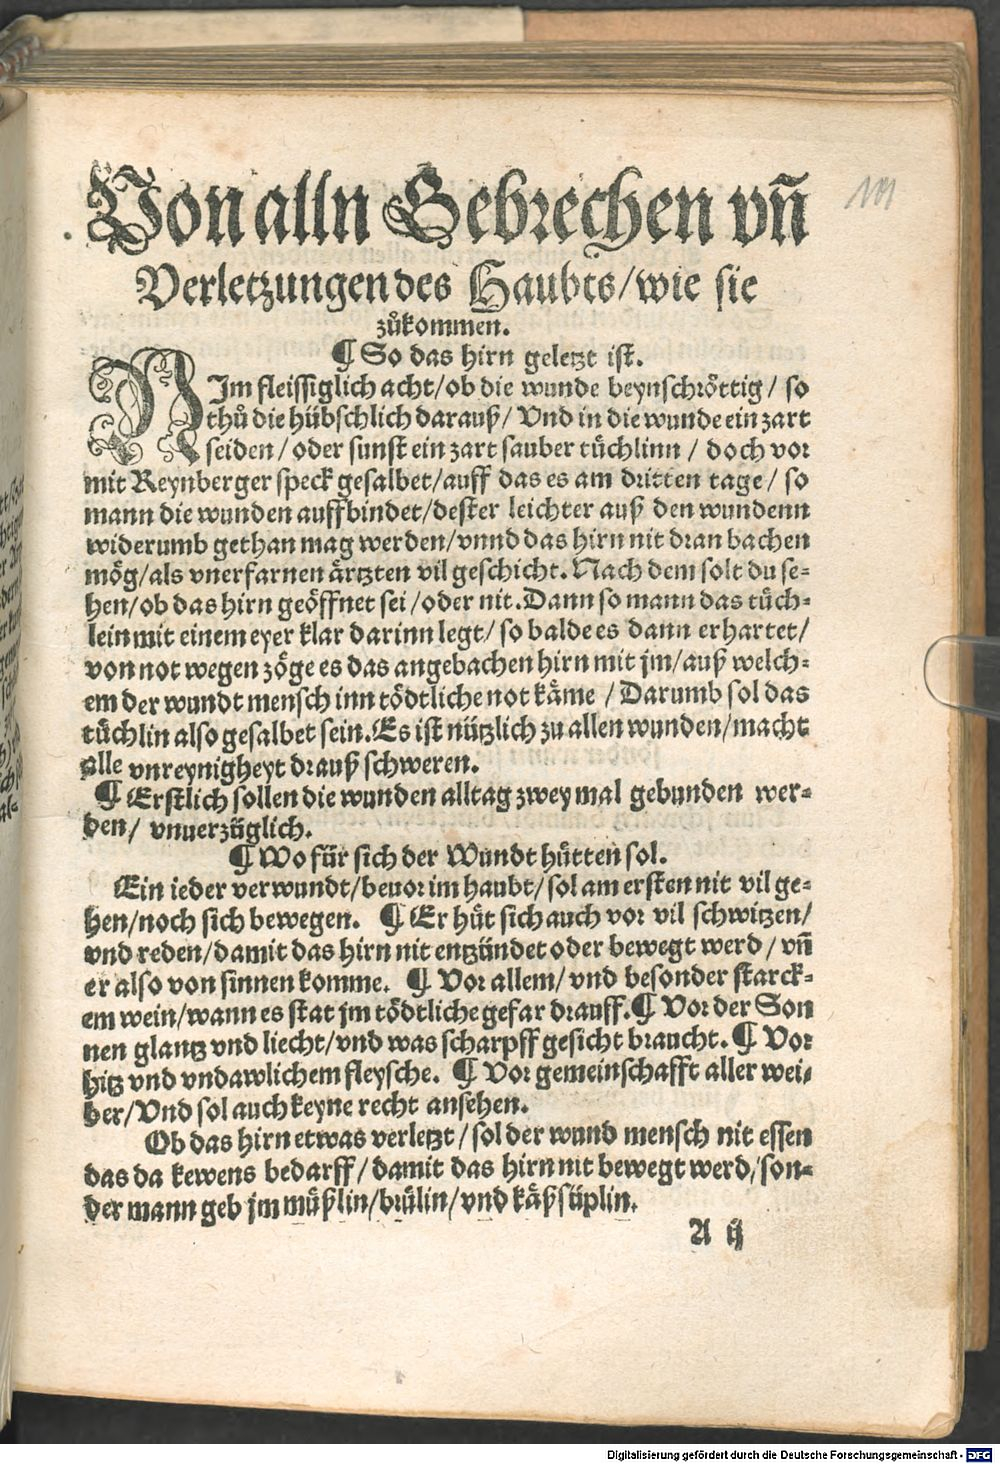 Von alln Gebrechen vn̄
Verletzungen des Haubts/wie sie
zůkommen.
¶ So das hirn geletzt ist.
NIm fleissiglich acht/ob die wunde beynschröttig/ so
thů die hübschlich darauß/ Vnd in die wunde ein zart
seiden/oder sunst ein zart sauber tüchlinn/ doch vor
mit Reynberger speck gesalbet/auff das es am dritten tage/ so
mann die wunden auffbindet/dester leichter auß den wundenn
widerumb gethan mag werden/vnnd das hirn nit dran bachen
mög/als vnerfarnen ärtzten vil geschicht. Nach dem solt du se-
hen/ob das hirn geöffnet sei/oder nit. Dann so mann das tüch-
lein mit einem eyer klar darinn legt/ so balde es dann erhartet/
von not wegen zöge es das angebachen hirn mit jm/auß welch-
em der wundt mensch inn tödtliche not käme/ Darumb sol das
tüchlin also gesalbet sein. Es ist nützlich zu allen wunden/macht
alle vnreynigheyt drauß schweren.
¶ Erstlich sollen die wunden alltag zwey mal gebunden wer-
den/ vnuerzüglich.
¶ Wo für sich der Wundt hütten sol.
Ein ieder verwundt/beuor im haubt/sol am ersten nit vil ge-
hen/noch sich bewegen. ¶ Er hüt sich auch vor vil schwitzen/
vnd reden/damit das hirn nit entzündet oder bewegt werd/ vn̄
er also von sinnen komme. ¶ Vor allem/ vnd besonder starck-
em wein/wann es stat jm tödtliche gefar drauff. ¶ Vor der Son
nen glantz vnd liecht/vnd was scharpff gesicht braucht. ¶ Vor
hitz vnd vndawlichem fleysche. ¶ Vor gemeinschafft aller wei-
ber/Vnd sol auch keyne recht ansehen.
Ob das hirn etwas verletzt/ sol der wund mensch nit essen
das da kewens bedarff/ damit das hirn nit bewegt werd/son-
der mann geb jm müßlin/brülin/vnd käßsüplin.
A ij
Digitalisierung gefördert durch die Deutsche Forschungsgemeinschaft - DFG